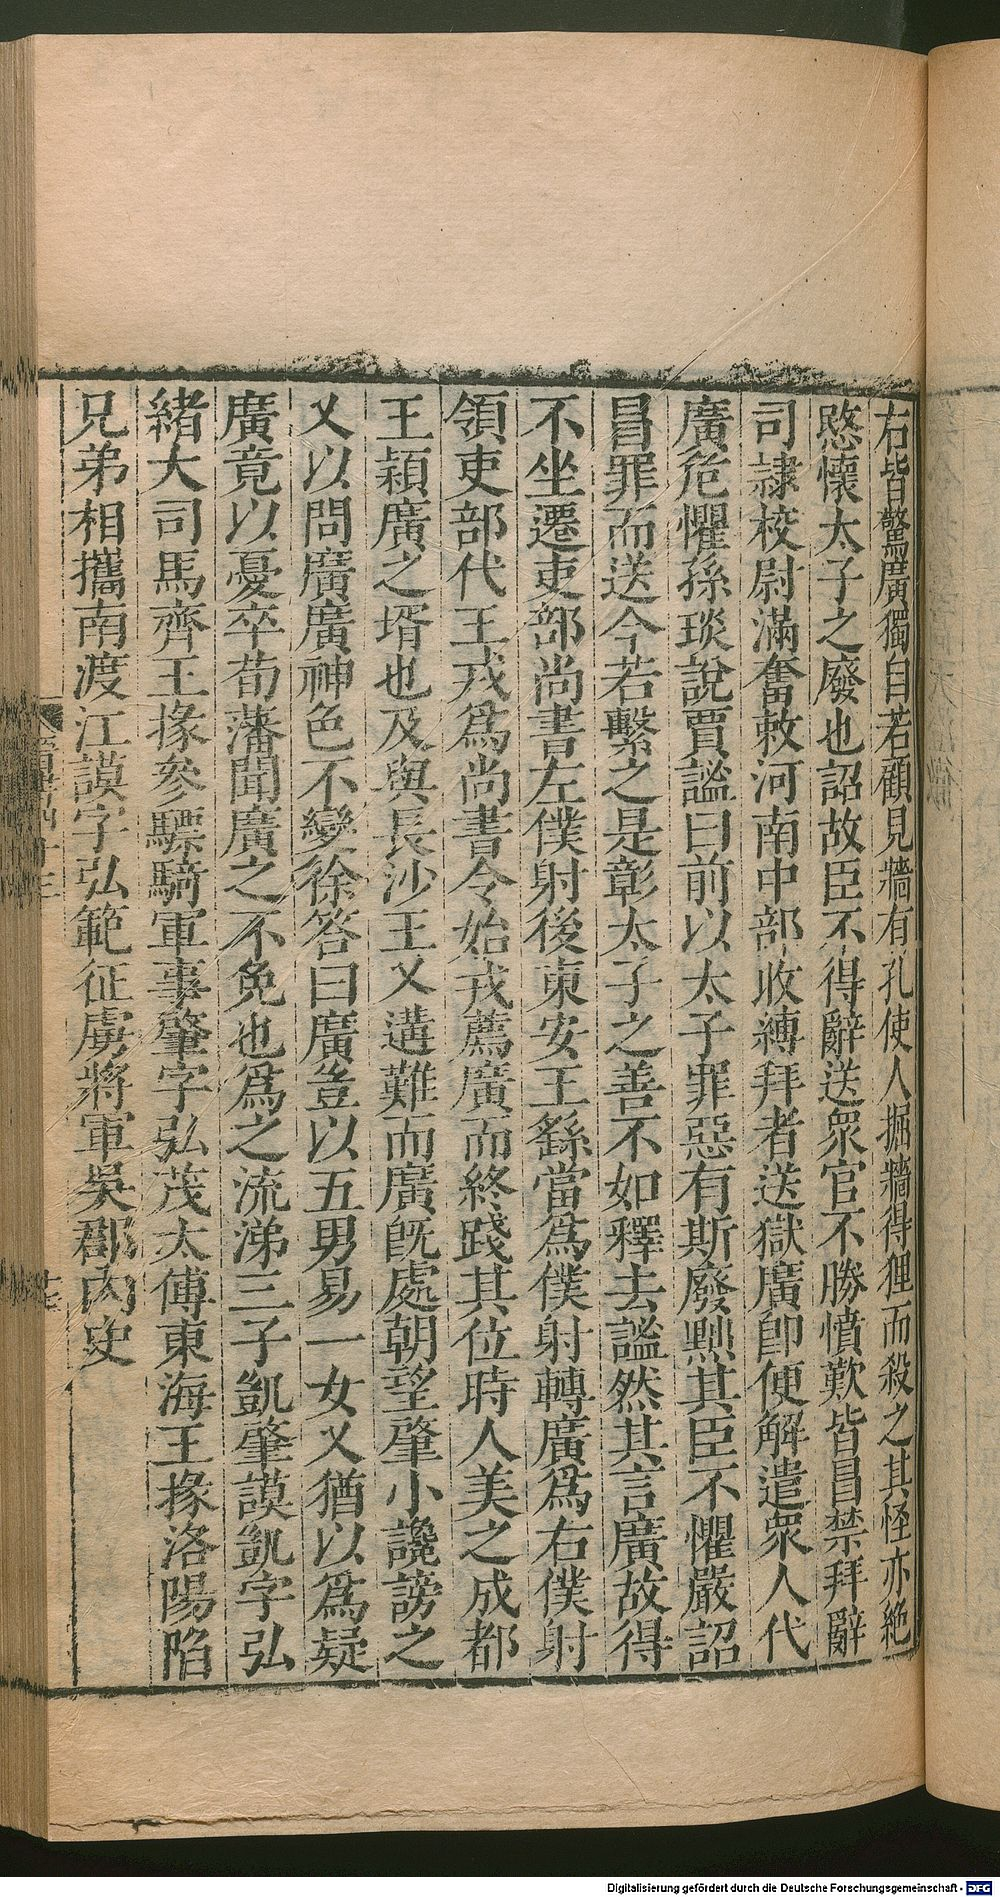 右皆驚廣獨自若顧見牆有孔使人掘牆得狸而殺之其怪亦絕
愍懷太子之廢也詔故臣不得辭送衆官不勝憤歎皆冒禁拜辭
司隷校尉滿奮敕河南中部收縛拜者送獄廣即便解遣衆人代
廣危懼孫琰說賈謐曰前以太子罪惡有斯廢黜其臣不懼嚴詔
冒罪而送今若繫之是彰太子之善不如釋去謐然其言廣故得
不坐遷吏部尚書左僕射後東安王繇當爲僕射轉廣爲右僕射
領吏部代王戎爲尚書令始戎薦廣而終踐其位時人美之成都
王穎廣之壻也及與長沙王乂遘難而廣既處朝望羣小讒謗之
乂以問廣廣神色不變徐答曰廣豈以五男易一女乂猶以爲疑
廣竟以憂卒荀藩聞廣之不免也爲之流涕三子凱肇謨凱字弘
緒大司馬齊王掾參驃騎軍事肇字弘茂太傅東海王掾洛陽陷
兄弟相攜南渡江謨字弘範征虜將軍吳郡內史
Digitalisierung gefördert durch die Deutsche Forschungsgemeinschaft - DFG